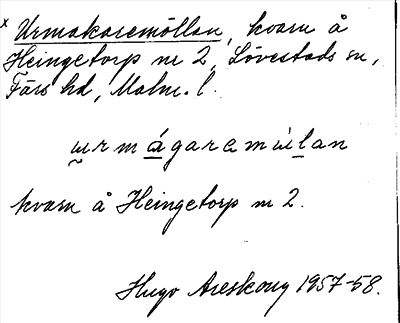 x Urmakaremöllan, kvarn å
Heingetorp nr 2, Lövestads sn,
Färs hd, Malm. l.
ɯrmágaremùlan
kvarn å Heingetorp nr 2.
Hugo Areskoug 1957-58.